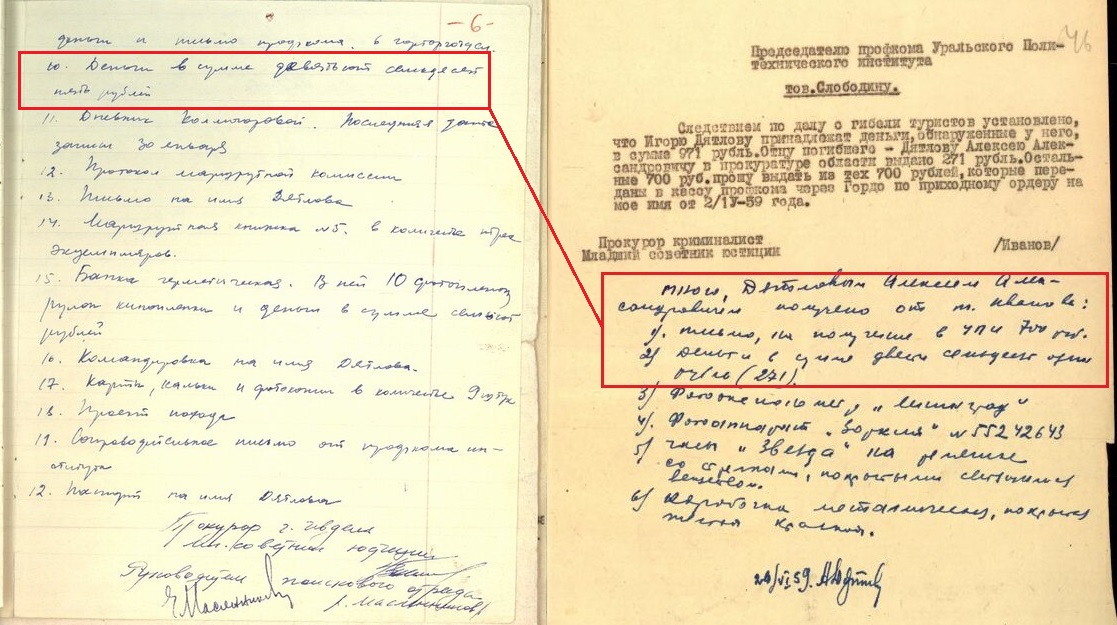 -6-
деньги и письмо профкома. в горторготдел
10. Деньги в сумме девятьсот семьдесят
пять рублей
11. Дневник Колмогоровой. Последняя дата
записи 30 января
12. Протокол маршрутной комиссии
13. Письмо на имя Дятлова
14. Маршрутная книжка №5. в количестве трех
экземпляров.
15. Банка герметическая. В ней 10 фотопленок
рулон кинопленки и деньги в сумме семьсот
рублей
16. Командировка на имя Дятлова.
17. Карты, кальки и фотокопии в количестве 9 штук
18. Проект похода
19. Сопроводительное письмо от профкома ин-
ститута
12. Паспорт на имя Дятлова
Прокурор г. Ивделя
мл. советник юстиции
Руководитель поискового отряда
Е. Масленников
46
Председателю профкома Уральского Поли-
технического института
тов.Слободину.
Следствием по делу о гибели туристов установлено,
что Игорю Дятлову принадлежат деньги,обнаруженные у него,
в сумма 971 рубль.Отцу погибшего - Дятлову Алексею Алек-
сандровичу в прокуратуре области выдано 271 рубль.Осталь-
ные 700 руб.прошу выдать из тех 700 рублей,которые пере-
даны в кассу профкома через Гордо по приходному ордеру на
мое имя от 2/1У-59 года.
Прокурор криминалист
Младший советник юстиции /Иванов/
Мною, Дятловым Алексеем Алек-
сандровичем получено от т. Иванова:
1). письмо, на получение в УПИ 700 руб.
2) Деньги в сумме двести семьдесят один
рубль (271).
3) Фотоэкспонометр „Ленинград"
4). Фотоаппарат „Зоркий" №55242643
5) часы „Звезда" на ремешке
со стрелками, покрытыми светящимся
веществом.
6) коробочка металическая, покрытая
краской.
59.